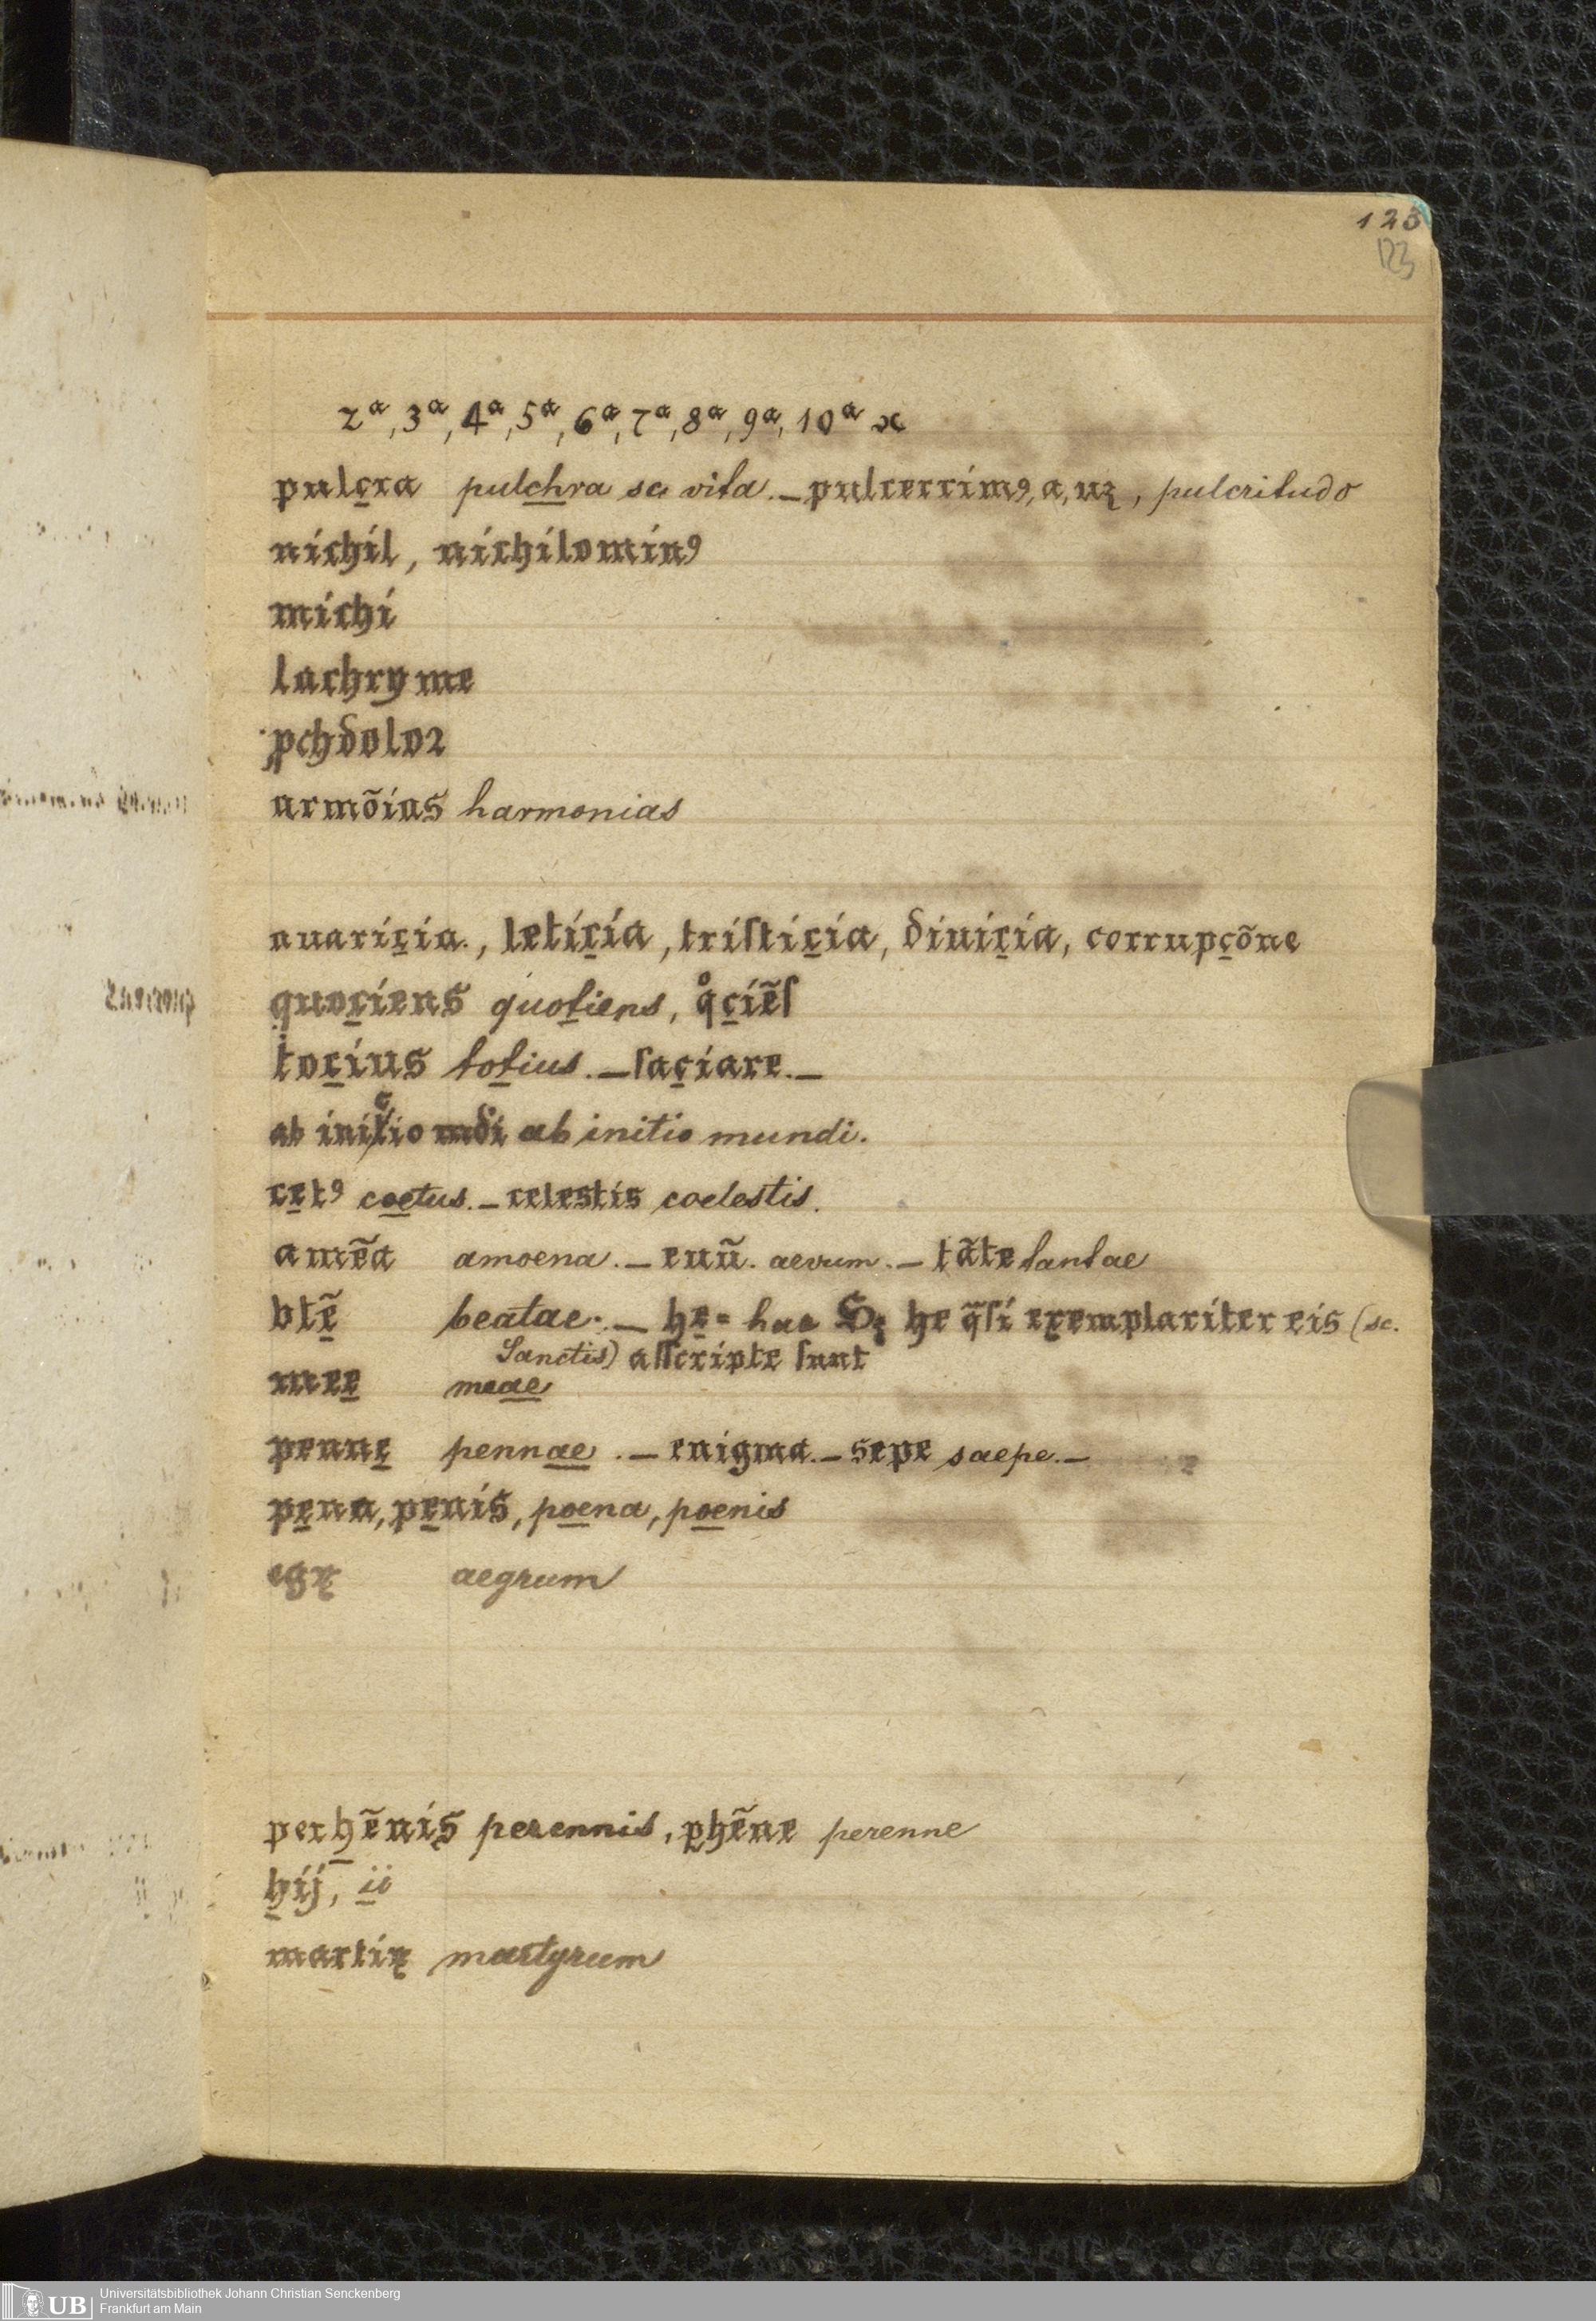 123
123
2ª, 3ª, 4ª, 5ª, 6ª, 7ª, 8ª, 9ª, 10ª
pulcra pulchra sc vita. — pulcerrimꝰ, a, uꝫ, pulcritudo
nichil, nichilominꝰ
michi
lachryme
pchdoloꝛ
armõias harmonias
auaricia., leticia, triſticia, diuicia, corrupcõne
quociens quotiens, qͦciẽſ
tocius totius. — ſaciare. —
ab inicio mdi ab initio mundi.
cetꝰ coetus. — celestis coelestis.
amẽa amoena. — euũ. aevum. — tãte tantae
btẽ beatae. — he = hae S; he q̃ſi exemplariter eis (sc.
Sanctis) aſſcripte ſunt
mee meae
penne pennae. — enigma. — sepe saepe. —
pena, penis, poena, poenis
egꝝ aegrum
perhẽnis perennis, ꝑhẽne perenne
hij, ii
martiꝝ martyrum
UB
Universitätsbibliothek Johann Christian Senckenberg
Frankfurt am Main